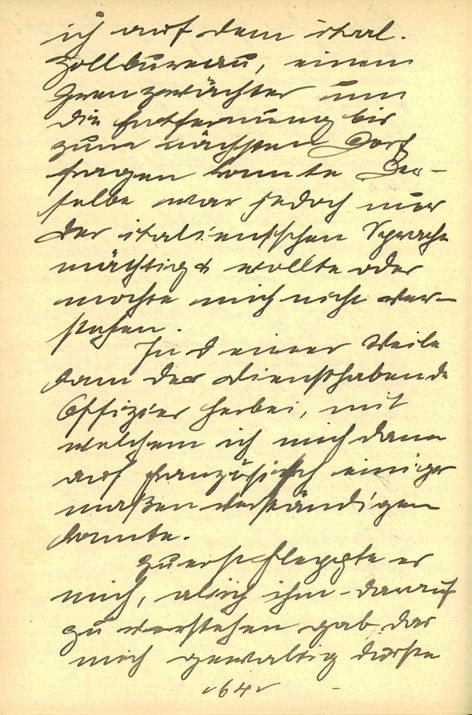 ich auf dem ital.
Zollbureau, einen
Grenzwächter um
die Entfernung bis
zum nächsten Dorf
fragen konnte. Der-
selbe war jedoch nur
der italienischen Sprache
mächtig & wollte oder
mochte mich nicht ver-
stehen.
In einer Weile
kam der diensthabende
Offizier herbei, mit
welchem ich mich dann
auf französisch einiger
maßen verständigen
konnte.
Zuerst fleppte er
mich, als ich ihm darauf
zu verstehen gab, das
mich gewaltig dürste
64